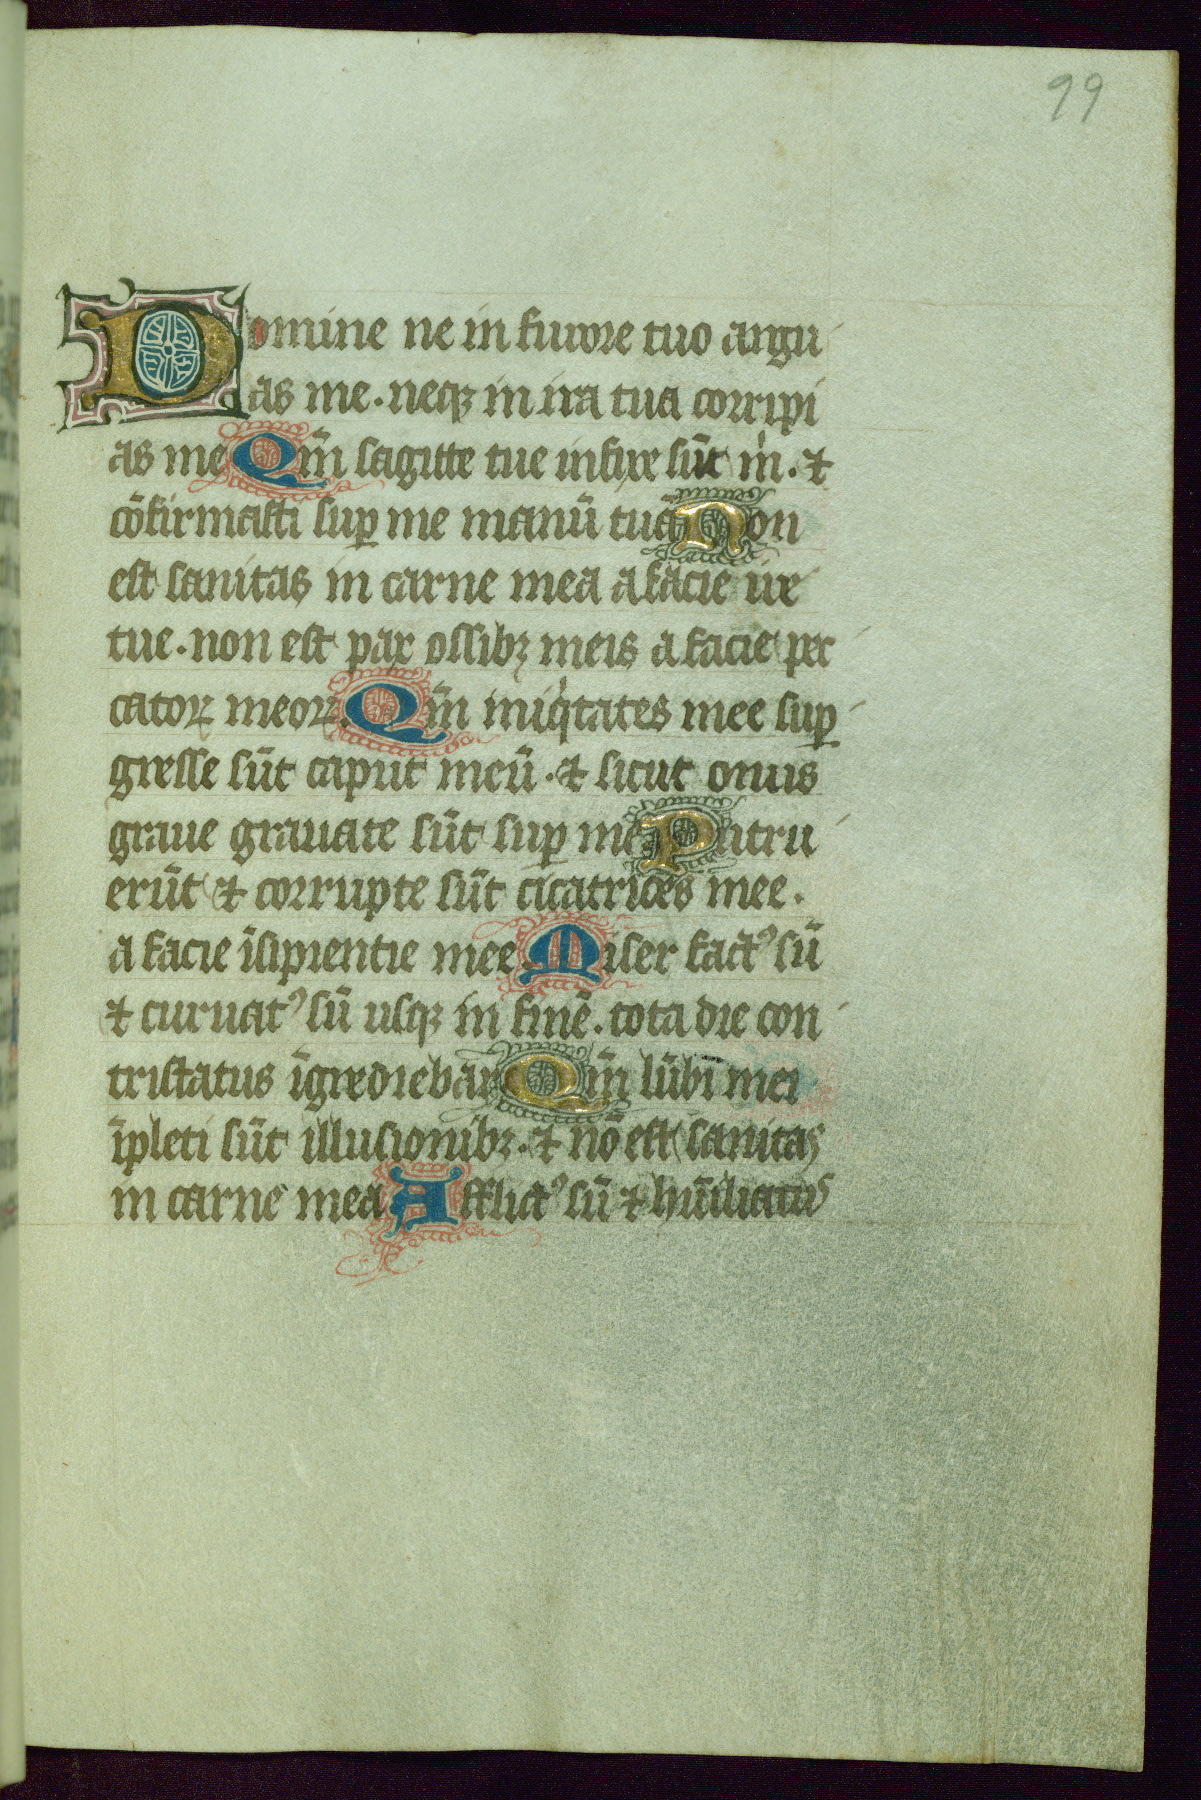 99
Domine ne in furore tuo argu
as me. neqꝫ in ira tua corripi
as me Qm̄ sagitte tue infixe sūt m̍. ⁊
cōfirmasti suꝑ me manū tuā Non
est sanitas in carne mea a facie ire
tue. non est pax ossibꝫ meis a facie pec
catoꝝ meoꝝ. Qm̄ iniq̍tates mee suꝑ
gresse sūt caput meū. ⁊ sicut onus
graue grauate sūt suꝑ me Putru
erūt ⁊ corrupte sūt cicatrices mee.
a facie īsipientie mee. Miser factꝰ sū
⁊ curuatꝰ sū usqꝫ in finē. tota die con
tristatus īgrediebar Qm̄ lūbi mei
īpleti sūt illusionibꝫ. ⁊ nō est sanitas
in carne mea Afflictꝰ sū ⁊ hūiliatus